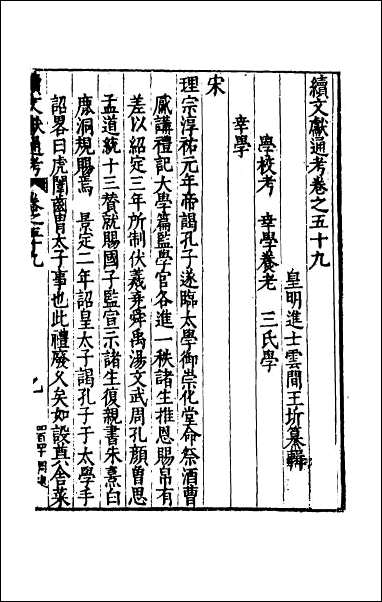 續文獻通考卷之五十九
皇明進士雲間王圻纂輯
學校考　幸學養老　三氏學
幸學
宋
理宗淳祐元年帝謁孔子遂臨太學御崇化堂命祭酒曹
觱講禮記大學篇監學官各進一秩諸生推恩賜帛有
差以紹定三年所制伏羲堯舜禹湯文武周孔顏曾思
孟道統十三贊就賜國子監宣示諸生復親書朱熹白
鹿洞規賜焉　景定二年詔皇太子謁孔子于太學手
詔畧曰虎闈齒胄太子事也此禮廢乆矣如設奠舍菜
續文獻通考　卷之五十九